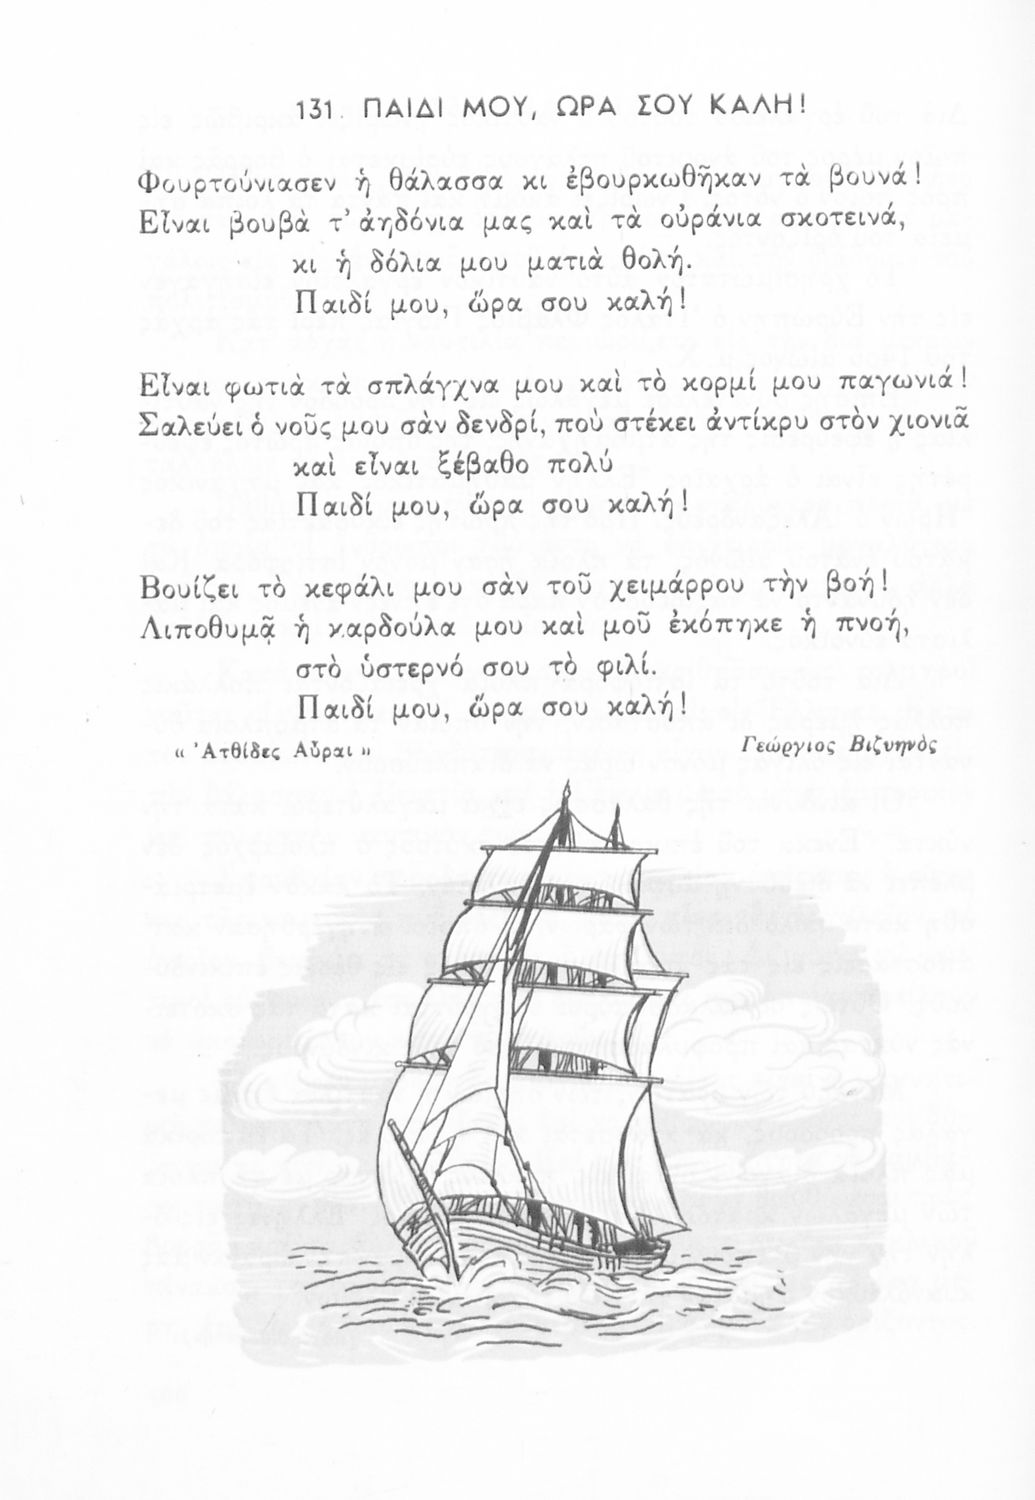 131. ΠΑΙΔΙ ΜΟΥ, ΩΡΑ ΣΟΥ ΚΑΛΗ!
Φουρτούνιασεν ἡ θάλασσα κι ἐβουρκωθῆκαν τὰ βουνά!
Εἶναι βουβὰ τ’ ἀηδόνια μας καὶ τὰ οὐράνια σκοτεινά,
κι ἡ δόλια μου ματιὰ θολή.
Παιδί μου, ὥρα σου καλή!
Εἶναι φωτιὰ τὰ σπλάγχνα μου καὶ τὸ κορμί μου παγωνιά!
Σαλεύει ὁ νοῦς μου σὰν δενδρί, ποὺ στέκει ἀντίκρυ στὸν χιονιᾶ
καὶ εἶναι ξέβαθο πολύ
Παιδί μου, ὥρα σου καλή!
Βουίζει τὸ κεφάλι μου σὰν τοῦ χειμάρρου τὴν βοή!
Λιποθυμᾷ ἡ καρδούλα μου καὶ μοῦ ἐκόπηκε ἡ πνοή,
στὸ ὑστερνό σου τὸ φιλί.
Παιδί μου, ὥρα σου καλή!
« Ἀτθίδες Αὖραι »
Γεώργιος Βιζυηνὸς